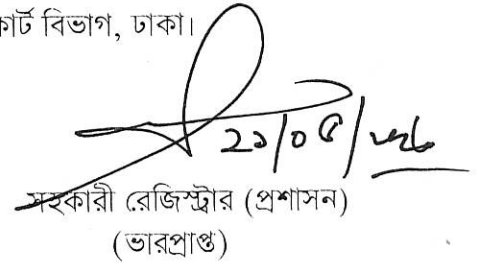 কোর্ট বিভাগ, ঢাকা।
২১/০৫/
সহকারী রেজিস্ট্রার (প্রশাসন)
(ভারপ্রাপ্ত)